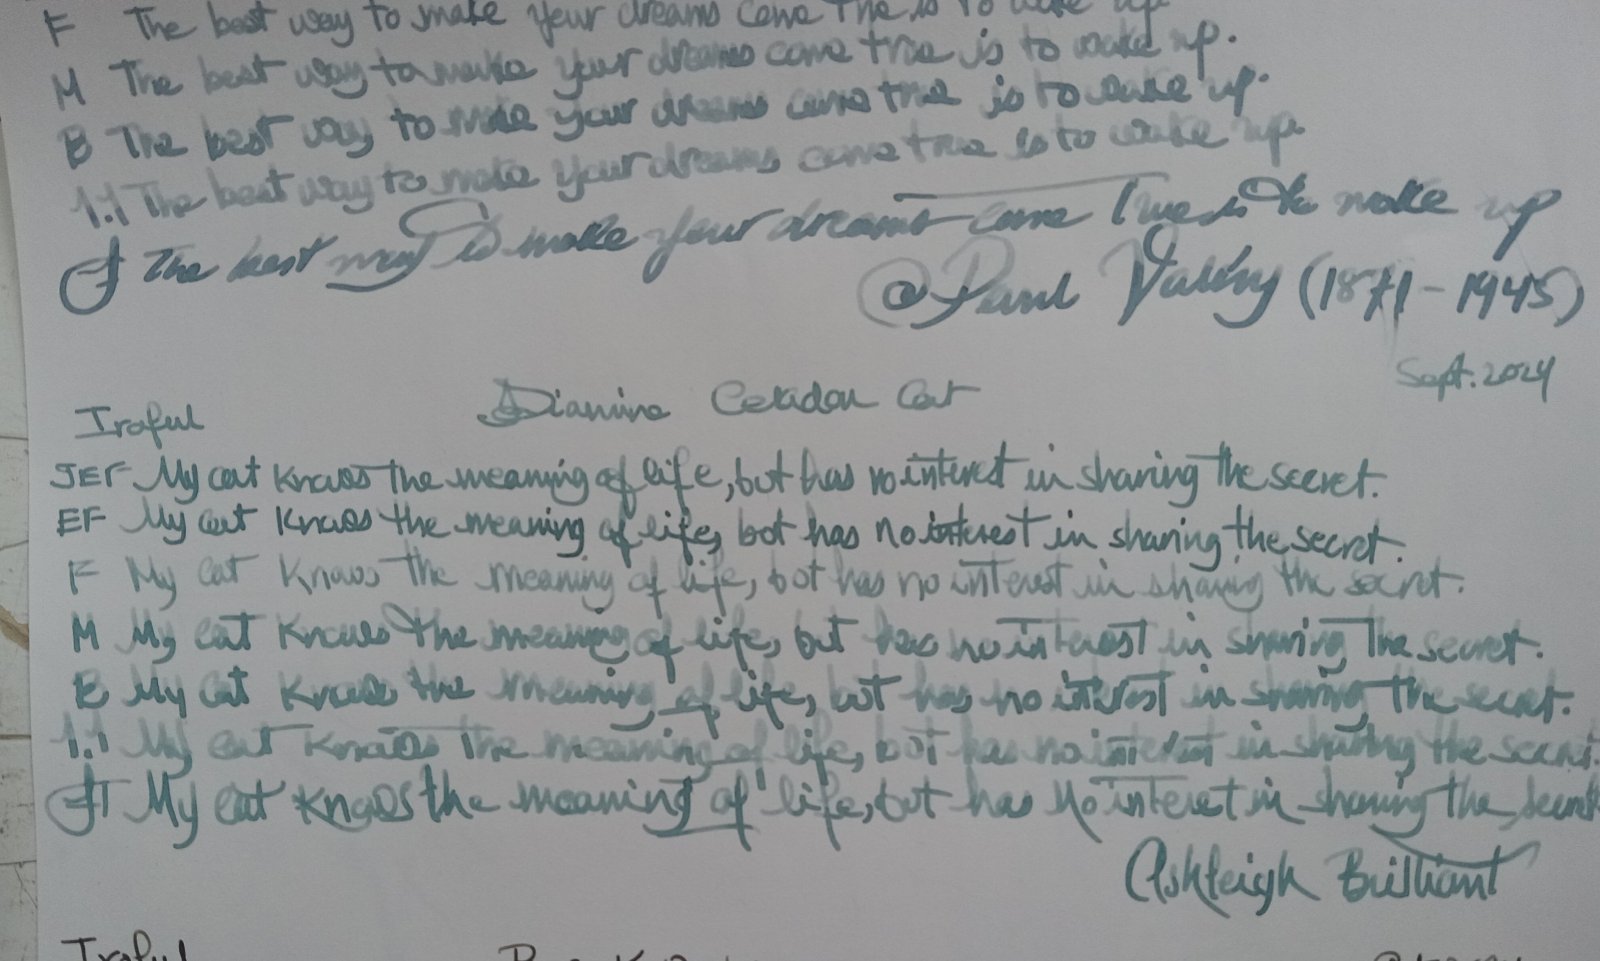 F The best way to make your dreams come true is to wake up
M The best way to make your dreams come true is to wake up.
B The best way to make your dreams come true is to wake up.
1.1 The best way to make your dreams come true is to wake up.
The best way to make your dreams come true is to wake up
@Paul Valéry (1871-1945)
Sept. 2024
Iroful Diamine Celadon Cat
JEF My cat knows the meaning of life, but has no interest in sharing the secret.
EF My cat knows the meaning of life, but has no interest in sharing the secret.
F My cat knows the meaning of life, but has no interest in sharing the secret.
M My cat knows the meaning of life, but has no interest in sharing the secret.
B My cat knows the meaning of life, but has no interest in sharing the secret.
1.1 My cat knows the meaning of life, but has no interest in sharing the secret.
My cat knows the meaning of life, but has no interest in sharing the secret
Ashleigh Brilliant
Iroful